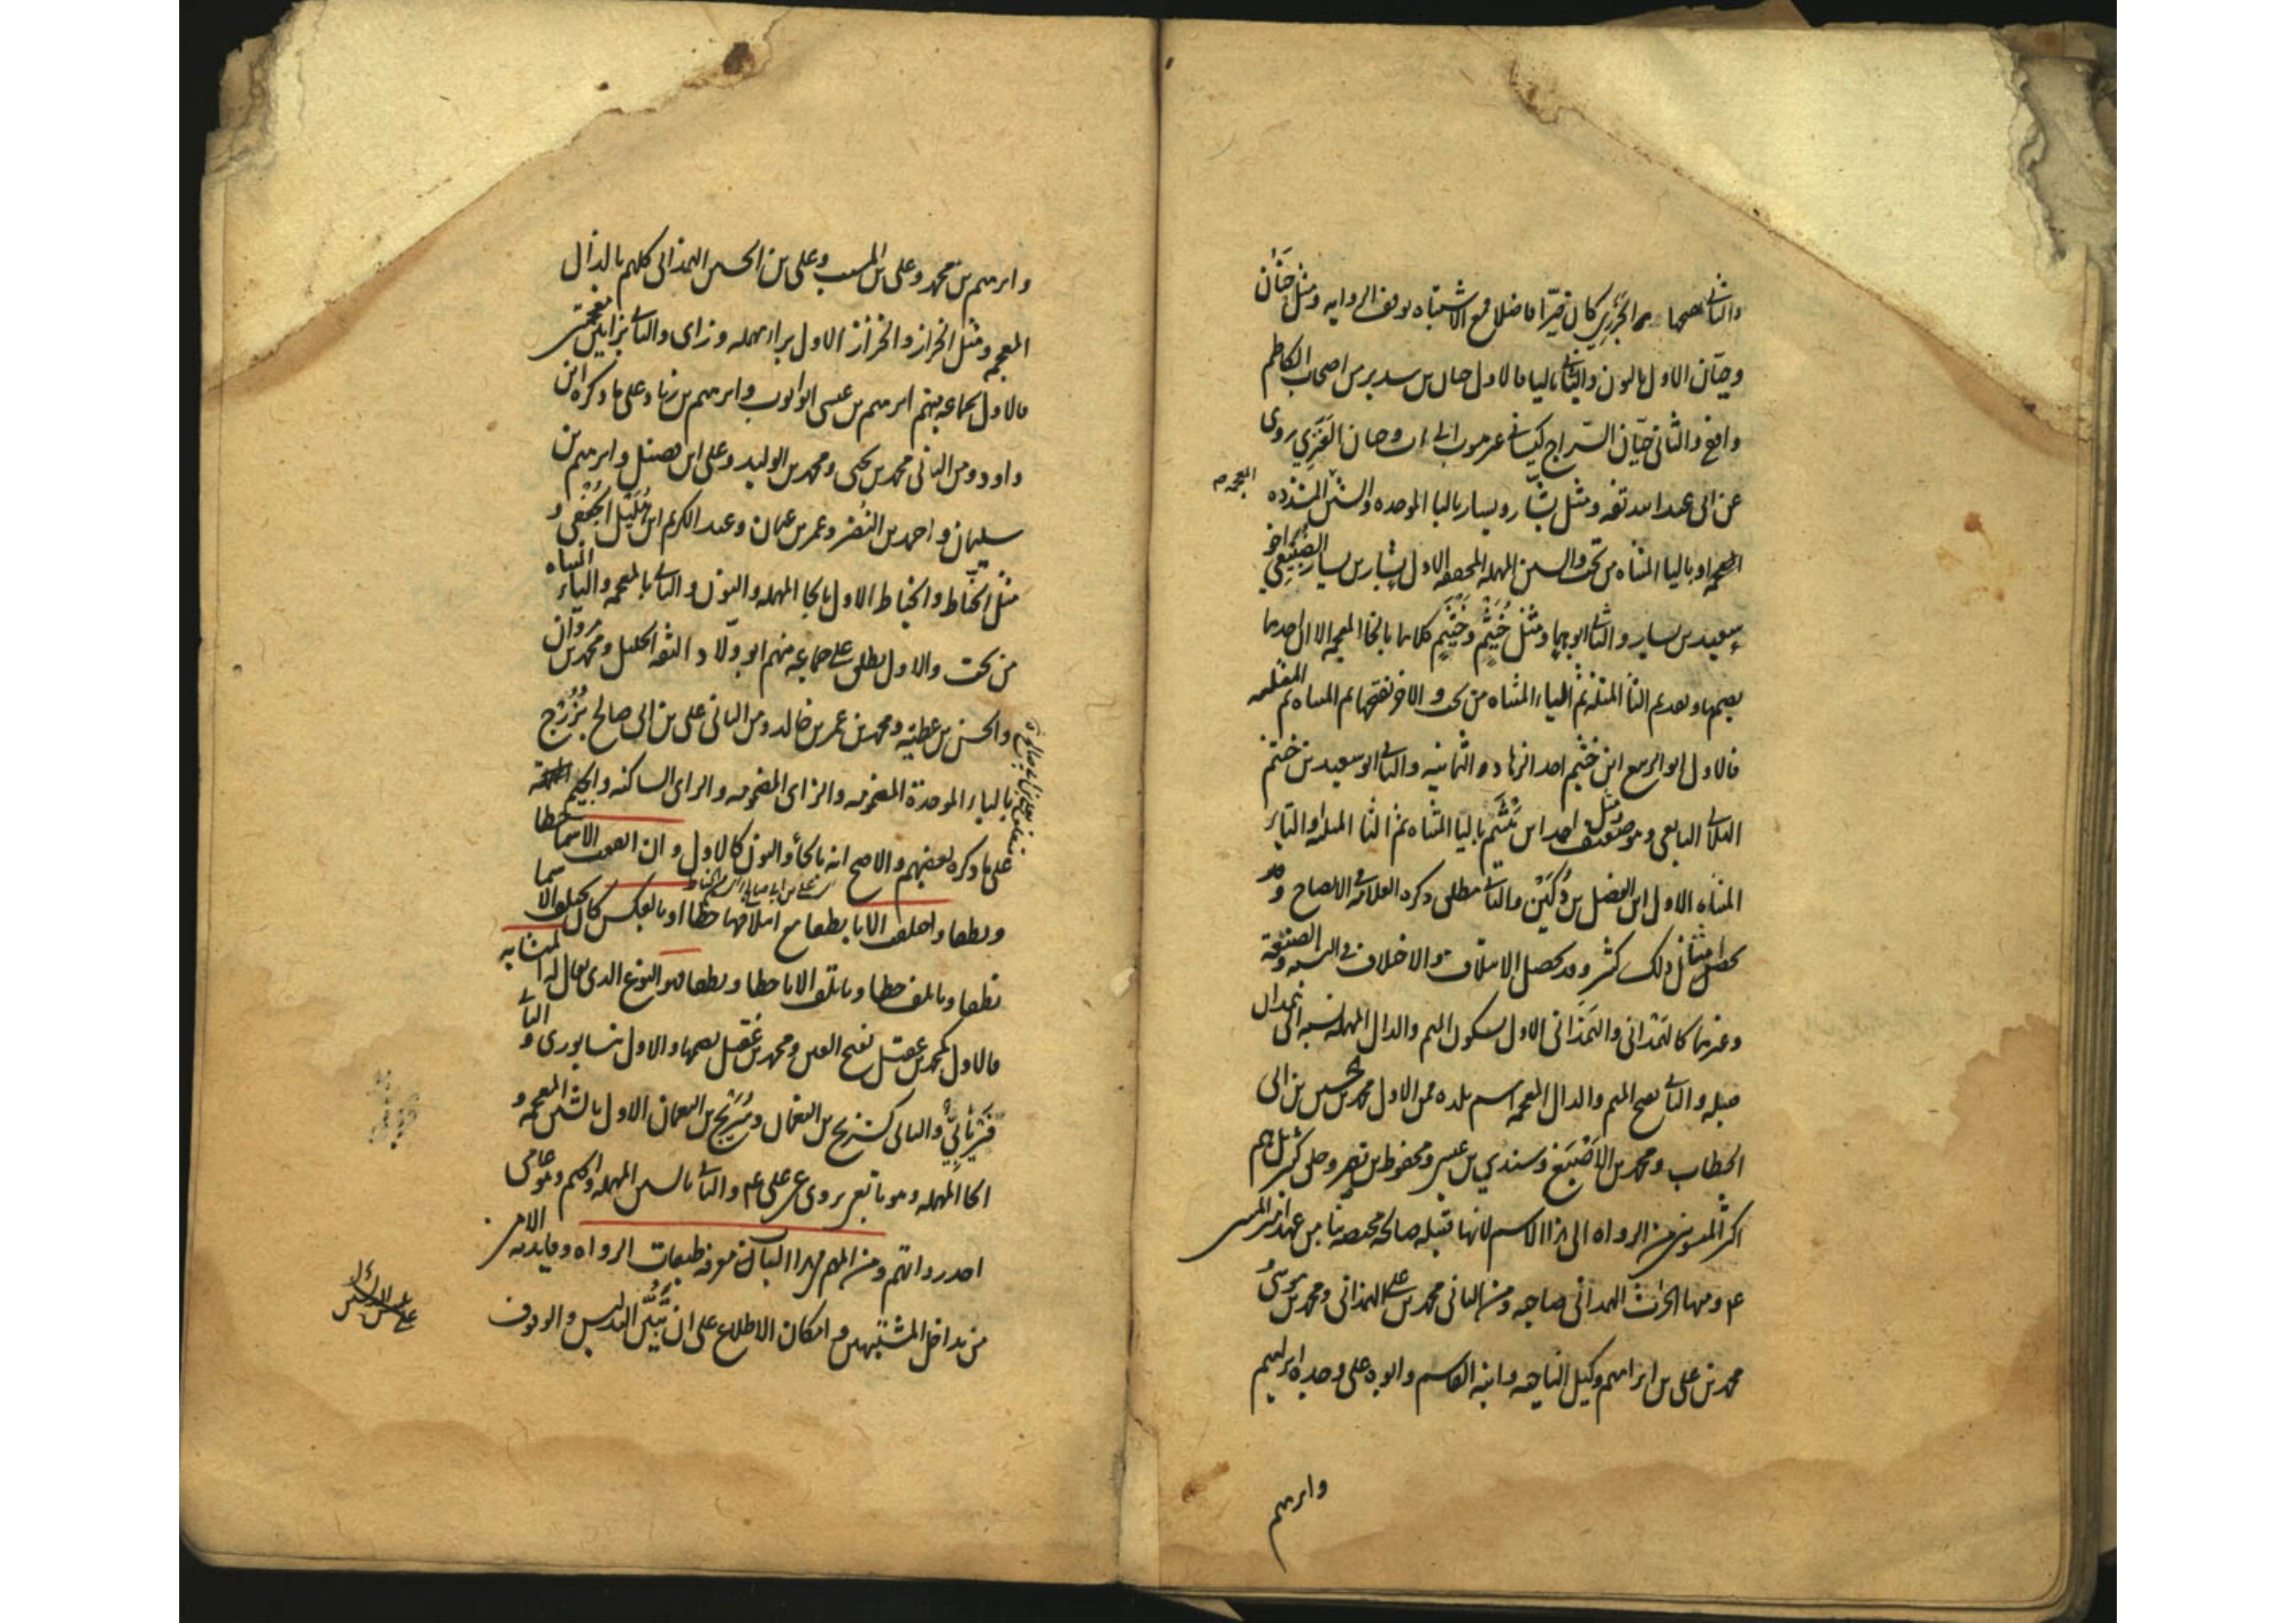 والثاني بضمها
الجزري كان خيّرا فاضلا فمع الاشتباه توقف الروايه ومثل حَنَان
وحيّان الاول بالنون والثاني باليا فالاول حنان بن سدير من اصحاب الكاظم
واقفي والثاني حيّان السّراج كيساني وحيان العَنَزي روى
عن ابي عبد الله ثقه ومثل بشّار ويسار باليا الموحده والشين المشدده
المعجمه
المعجمه او باليا المثناه من تحت والسين المهمله المخففه الاول بشار بن يسار الضُّبَيعي اخو
سعيد بن يسار والثاني ابوهما ومثل خُثَيْم وخَيْثَم كلاهما بالخا المعجمه الا ان احدهما
بضمها وتقديم الثا المثلثه ثم الياء المثناه من تحت والاخر بفتحها ثم المثناه ثم المثلثه
فالاول ابو الربيع ابن خثيم احد الزهاد الثمانيه والثاني ابو سعيد بن خثيم
الهلالي التابعي وهو ضعيف ومثل احمد ابن مَيْثَم باليا المثناه ثم الثا المثلثه او التاء
المثناه الاول ابن الفضل بن دُكَيْن والثاني مطلق ذكره العلامه في الايضاح وقد
امثال ذلك كثير وقد يحصل الايتلاف والاختلاف في النسبه والصنعة
وغيرهما كالهَمْداني والهَمَذاني الاول بسكون الميم والدال المهمله نسبه الى همدان
قبيله والثاني بفتح الميم والذال المعجمه اسم بلده فمن الاول محمد بن الحسين بن ابي
الخطاب ومحمد بن الاَصْبَغ وسندي بن عيسى ومحفوظ بن نصر وخلق كثير بل هم
اكثر المنسوبين من الرواه الى هذا الاسم لانها قبيله صالحه مختصه بنا من عهد امير المؤمنين
ع ومنها الحارث الهمداني صاحبه ومن الثاني محمد بن علي الهمذاني ومحمد بن موسى
محمد بن علي بن ابراهيم وكيل الناحيه وابنه القاسم وابوه علي وجده ابراهيم
وابرهيم
وابرهيم بن محمد وعلي بن المسيب وعلي بن الحسين الهمذاني كلهم بالذال
المعجمه ومثل الخراز والخزاز الاول براء مهمله وزاى والثاني بزايين معجمتين
فالاول لجماعه منهم ابرهيم بن عيسى ابو ايوب وابرهيم بن زياد على ما ذكره ابن
داود ومن الثاني محمد بن يحيى ومحمد بن الوليد وعلي ابن فضيل وابرهيم بن
سليمان واحمد بن النضر وعمر بن عثمان وعبد الكريم ابن هُلَيْل الجُعْفي و
مثل الحنّاط والخيّاط الاول بالحا المهمله والنون والثاني بالمعجمه والياء المثناه
من تحت والاول يطلق على جماعه منهم ابو ولّاد الثقه الجليل ومحمد بن مروان
والحسن بن عطيه ومحمد بن عمر بن خالد ومن الثاني علي بن ابي صالح بُزُرْج
بالباء الموحدة المضمومه والزاى المضمومه والراى الساكنه والجيم
على ما ذكره بعضهم والاصح انه بالحا والنون كالاول وان اتفقت الاسما خطا
ونطقا واختلفت الابا نطقا مع ايتلافهما خطا او بالعكس كأن يختلف الاسما
نطقا ويأتلف خطا ويأتلف الابا خطا ونطقا فهو النوع الذى يقال له المتشابه
فالاول كمحمد بن عَقيل بفتح العين ومحمد بن عُقَيل بضمها والاول نيسابورى والثاني
فِرْيابِيٌّ والثاني كشريح بن النعمان وسُرَيْج بن النعمان الاول بالشين المعجمه و
الحا المهمله وهو تابعي يروى عن علي ع والثاني بالسين المهمله والجيم وهو عامي
احد رواتهم ومن المهم في هذا الباب معرفه طبقات الرواه وفايدته الامن
من تداخل المشتبهين وامكان الاطلاع على ان تبيّن التدليس والوقوف